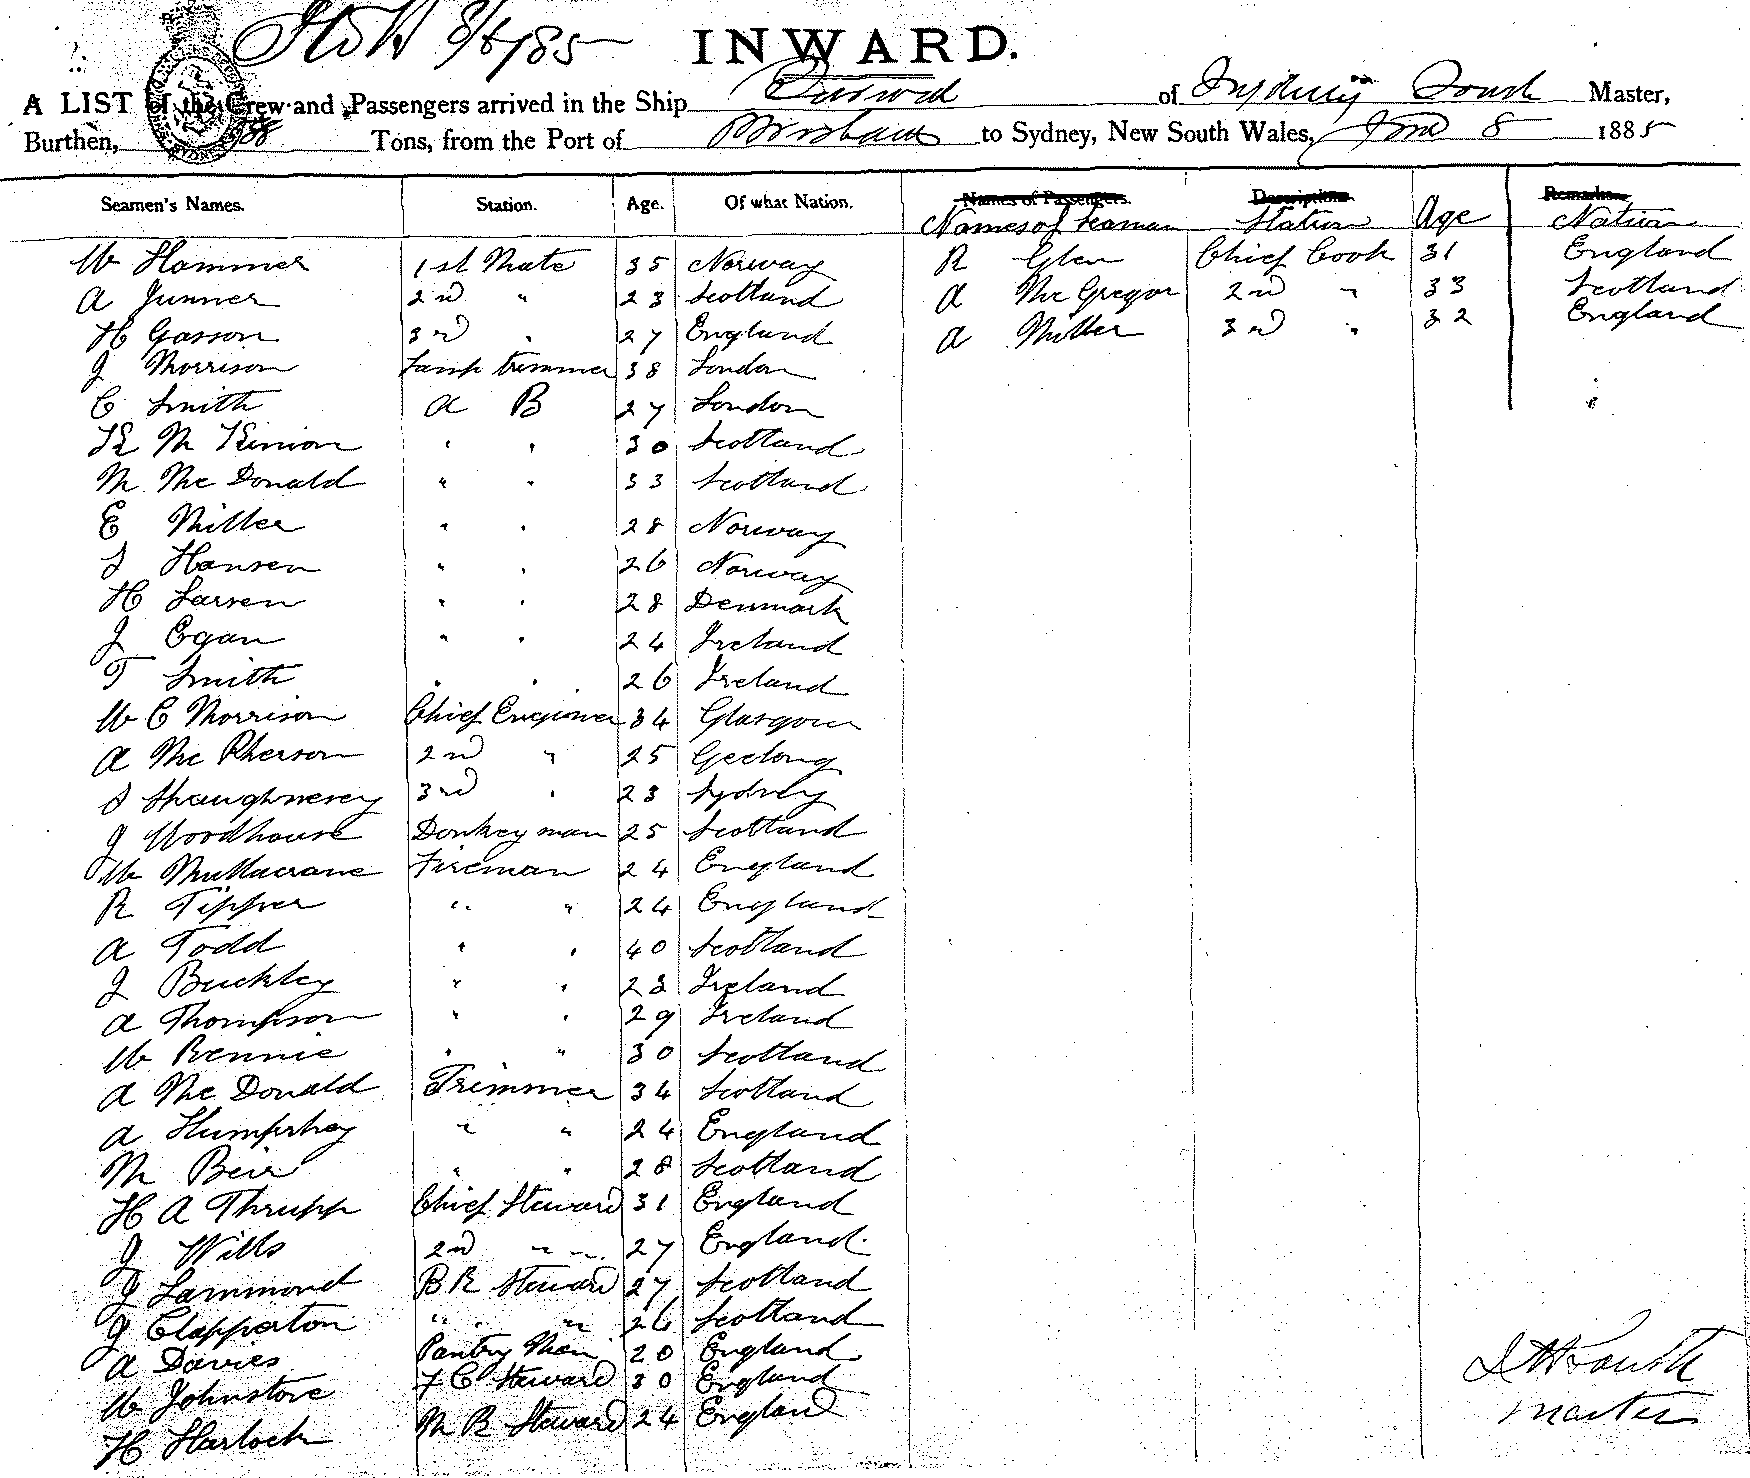 8/6/85
INWARD.
A LIST of the Crew and Passengers arrived in the Ship of Sydney Master,
Burthen, Tons, from the Port of Brisbane to Sydney, New South Wales, June 8 1885
Seamen's Names. Station. Age. Of what Nation. Names of Passengers. Descriptions. Remarks.
Names of Seaman Station Age Nation
W Hammer 1st Mate 35 Norway R Glen Chief Cook 31 England
A Junner 2nd " 23 Scotland A McGregor 2nd " 33 Scotland
H Gasson 3rd " 27 England A Miller 3rd " 32 England
J Morrison Lamp trimmer 38 London
C Smith A B 27 London
K M Kinion " " 30 Scotland
M McDonald " " 33 Scotland
E Miller " " 28 Norway
J Hansen " " 26 Norway
H Larsen " " 28 Denmark
J Egan " " 24 Ireland
T Smith " " 26 Ireland
W C Morrison Chief Engineer 34 Glasgow
A McPherson 2nd " 25 Geelong
J Shaughnesey 3rd " 23 Sydney
J Woodhouse Donkeyman 25 Scotland
W Mullacrane Fireman 24 England
R Tipper " " 24 England
A Todd " " 40 Scotland
J Buckley " " 23 Ireland
A Thompson " " 29 Ireland
W Rennie " " 30 Scotland
A McDonald Trimmer 34 Scotland
A Humphrey " " 24 England
M Beir " " 28 Scotland
H A Thrupp Chief Steward 31 England
J Wills 2nd " 27 England
J Lammond B R Steward 27 Scotland
J Clapperton " " 26 Scotland
A Davies Pantry Man 20 England
W Johnstone F C Steward 30 England
H Harlock M B Steward 24 England
Master